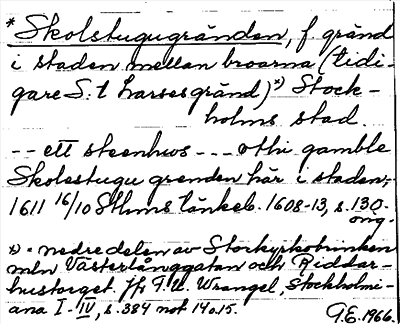 * Skolstugugränden, f. gränd
i staden mellan broarna (tidi-
gare S:t Larses gränd) *) Stock-
holms stad.
-- ett steenhws --- othi gamble
Skolestugu grenden här i staden,
1611 16/10 Sthms tänkeb. 1608-13, s. 130.
orig.
*) = nedre delen av Storkyrkobrinken
mln Västerlånggatan och Riddar-
hustorget. Jfr F.U. Wrangel, Stockholmi-
ana I-IV, s. 384 not 14 o. 15.
G.E. 1966.